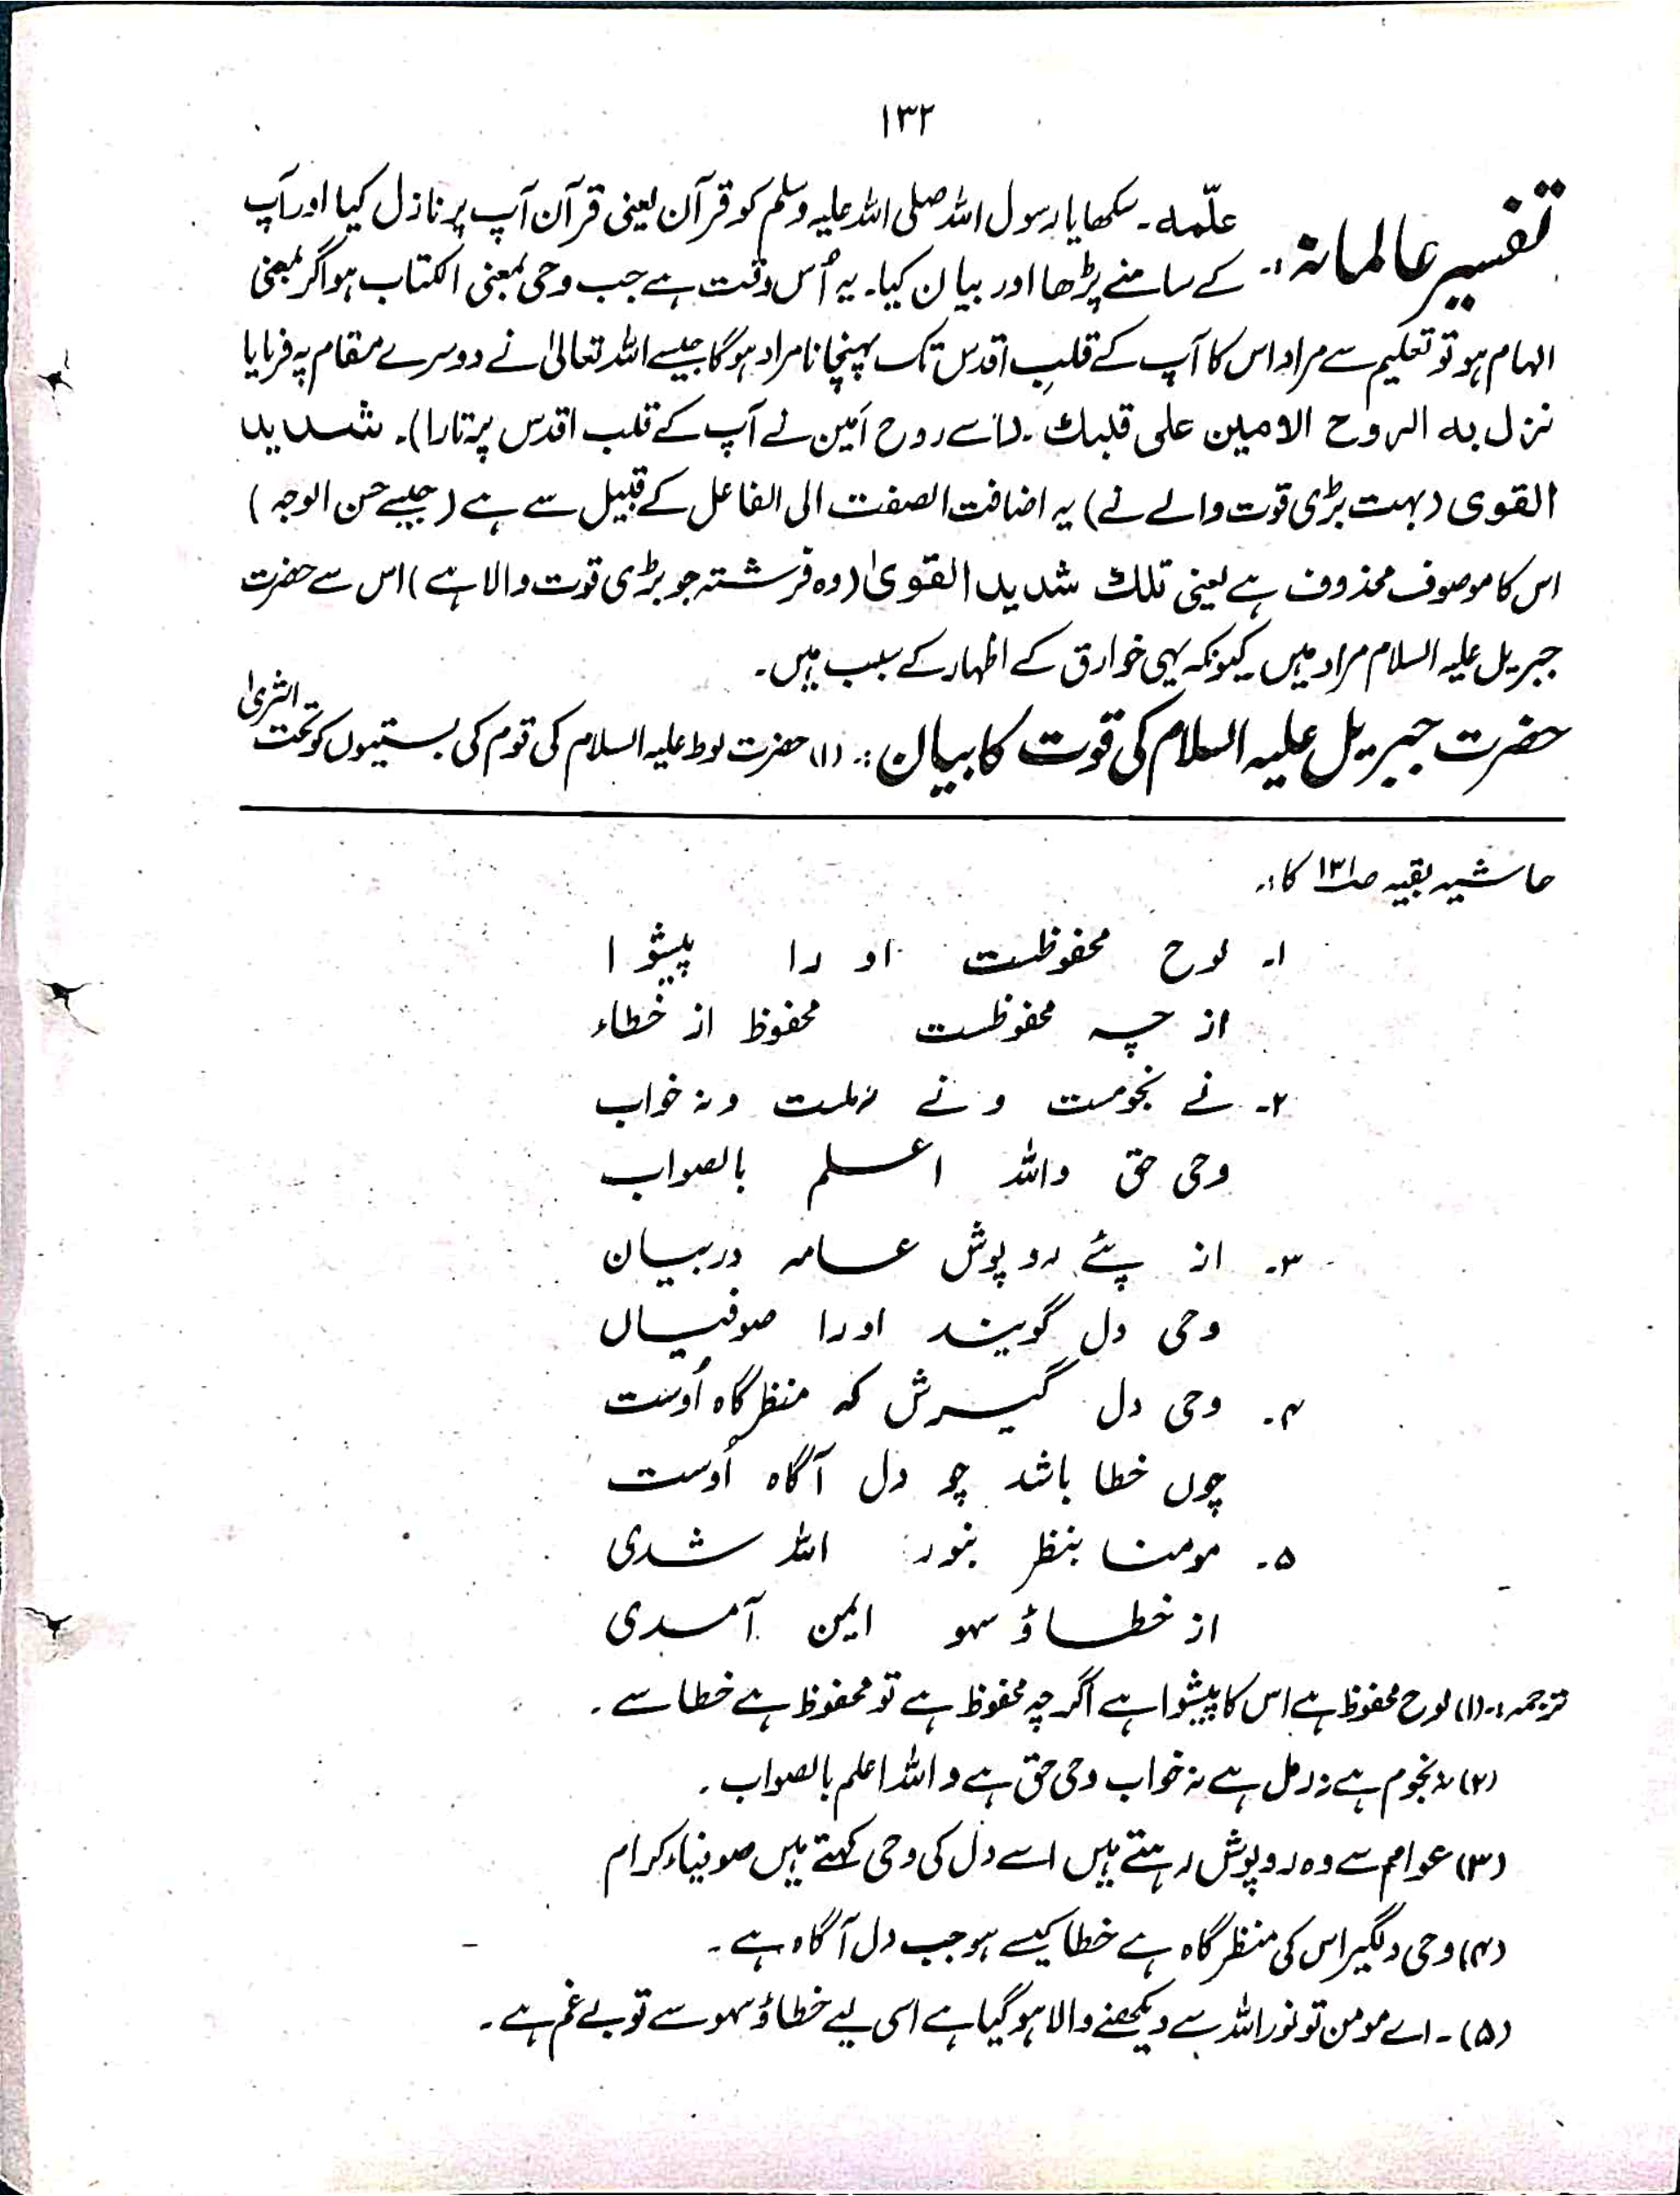 ۱۳۲
تفسیر عالمانہ :۔ علّمہ ۔ سکھایا رسول اللہ صلی اللہ علیہ وسلم کو قرآن یعنی قرآن آپ پر نازل کیا اور آپ
کے سامنے پڑھا اور بیان کیا۔ یہ اُس وقت ہے جب وحی بمعنی الکتاب ہو اگر بمعنی
الہام ہو تو تعلیم سے مراد اس کا آپ کے قلبِ اقدس تک پہنچانا مراد ہوگا جیسے اللہ تعالیٰ نے دوسرے مقام پہ فرمایا
نزل بہ الروح الامین علی قلبک ۔ (اسے روح امین نے آپ کے قلب اقدس پرتارا)۔ شدید
القوی (بہت بڑی قوت والے نے) یہ اضافت الصفت الی الفاعل کے قبیل سے ہے (جیسے حسن الوجہ)
اس کا موصوف محذوف ہے یعنی تلک شدید القویٰ (وہ فرشتہ جو بڑی قوت والا ہے) اس سے حضرت
جبریل علیہ السلام مراد ہیں۔ کیونکہ یہی خوارق کے اظہار کے سبب ہیں۔
حضرت جبریل علیہ السلام کی قوت کا بیان :۔ (۱) حضرت لوط علیہ السلام کی قوم کی بستیوں کو تحت الثریٰ
حاشیہ بقیہ صـ۱۳۱ کا :۔
۱۔ لوح محفوظست او را پیشوا
از چہ محفوظست محفوظ از خطاء
۲۔ نے نجومست و نے رملست و نہ خواب
وحی حق واللہ اعلم بالصواب
۳۔ از پئے رو پوش عامہ در بیان
وحی دل گویند اورا صوفیاں
۴۔ وحی دل گیرش کہ منظر گاہ اُوست
چوں خطا باشد چو دل آگاہ اُوست
۵۔ مومنا بنظر بنور اللہ شدی
از خطاؤ سہو ایمن آمدی
ترجمہ :۔ (۱) لوح محفوظ ہے اس کا پیشوا ہے اگرچہ محفوظ ہے تو محفوظ ہے خطا سے ۔
(۲) نہ نجوم ہے نہ رمل ہے نہ خواب وحی حق ہے واللہ اعلم بالصواب ۔
(۳) عوام سے وہ روپوش رہتے ہیں اسے دل کی وحی کہتے ہیں صوفیاء کرام
(۴) وحی دلگیر اس کی منظر گاہ ہے خطا کیسے ہو جب دل آگاہ ہے ۔
(۵) ۔ اے مومن تو نور اللہ سے دیکھنے والا ہو گیا ہے اسی لیے خطاؤ سہو سے تو بے غم ہے ۔